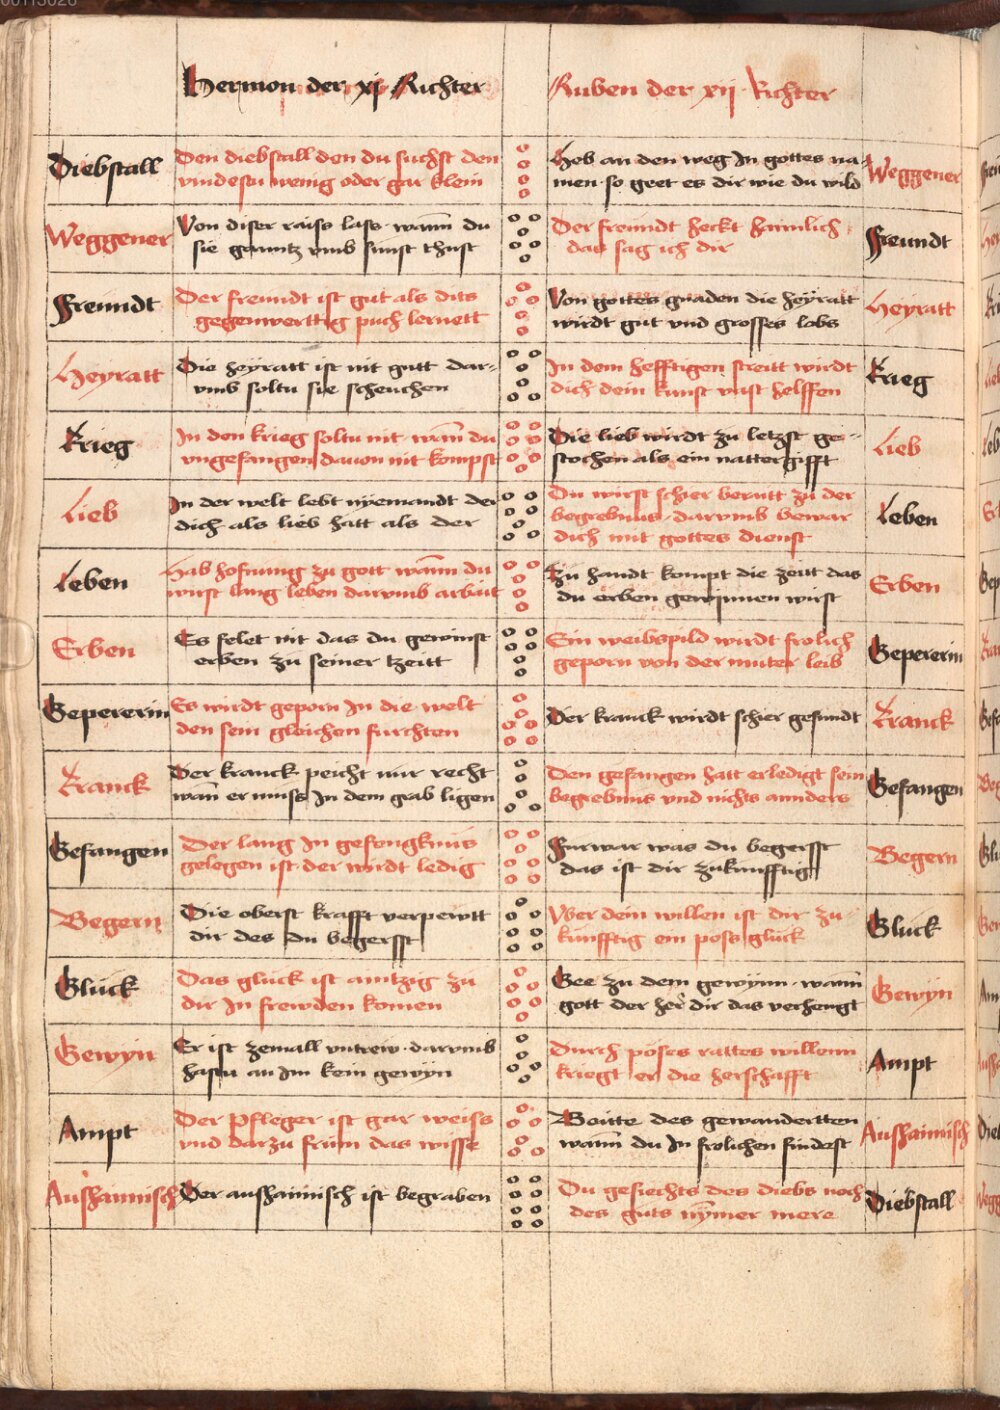 00113028
Hermon der xj Richter
Ruben der xij Richter
Diebstall
Den diebstall den du suchst den
vindestu wenig oder gar klein
Heb an den weg In gottes na-
men so geet es dir wie du wild
Weggener
Weggener
Von diser raiss lass wann du
sie gennutz vmb sunst thust
Der freundt heckt haimlich
das sag ich dir
Freundt
Freundt
Der freundt ist gut als dits
gegenwerttig puch lernett
Von gottes gnaden die heyratt
wirdt gut vnd grosses lobs
Heyratt
Heyratt
Die heyratt ist nit gutt dar-
vmb soltu sie scheuchen
In dem hefftigen streitt wirdt
dich dein kunst vast helffen
Krieg
Krieg
In den krieg soltu nit wann du
vngefangen dauon nit kompst
Die lieb wirdt zu letzst ge-
stochen als ein nattergifft
Lieb
Lieb
In der welt lebt nyemandt der
dich als lieb hatt als der
Du wirst schier berutt zu der
begrebnus darvmb bewar
dich mit gottes dienst
Leben
Leben
Hab hofnung zu gott wann du
wirst lang leben darvmb arbait
Zu handt kompt die zeitt das
du erben gewynnen wirst
Erben
Erben
Es felet nit das du gewinst
erben zu seiner tzeitt
Ein weibspild wirdt frolich
geporn von der muter leib
Gepererin
Gepererin
Es wirdt geporn In die welt
den sein gleichen furchten
Der kranck wirdt schier gesundt
Kranck
Kranck
Der kranck peicht nur recht
wann er muss In dem grab ligen
Den gefangen hatt erledigt sein
begrebnus vnd nichts annders
Gefangen
Gefangen
Der lang In gefengknus
gelegen ist der wirdt ledig
Furwar was du begerst
das ist dir zukunfftig
Begern
Begern
Die oberst krafft verpewtt
dir des du begersst
Vber dein willen ist dir zu-
kunfftig ein poss gluck
Gluck
Gluck
Das gluck ist aintzig zu
dir In frewden komen
Gee zu dem gewynn wann
gott der her dir das verhengt
Gewyn
Gewyn
Er ist zemall vntrew darvmb
hastu an Im kein gewyn
Durch poses rattes willenn
kriegt er die herschafft
Ampt
Ampt
Der Pfleger ist gar weiss
vnd darzu frum das wisse
Baitte des gewandertten
wann du In frolichen findest
Aushaimisch
Aushaimisch
Der aushaimisch ist begraben
Du gesiechts des diebs noch
des guts nymer mere
Diebstall